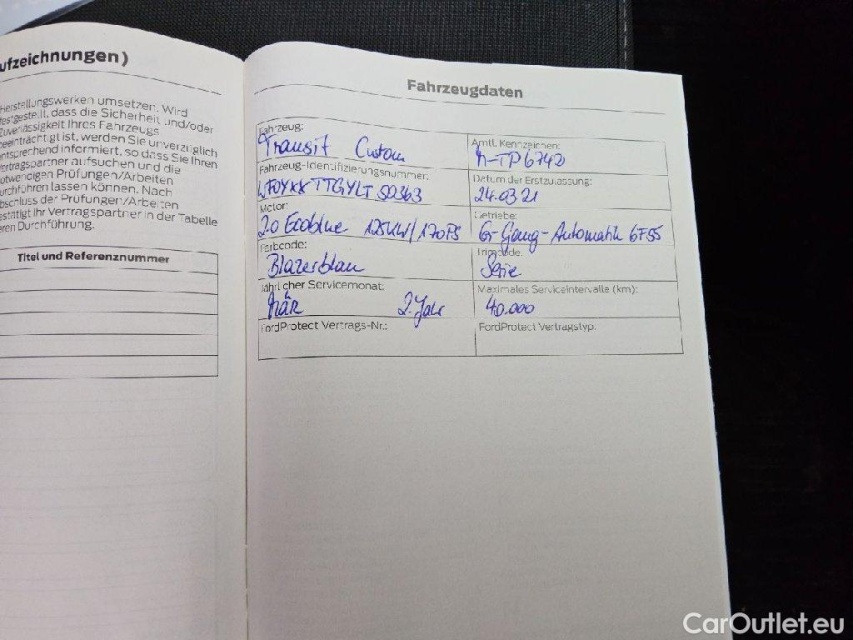 ufzeichnungen)
Herstellungswerken umsetzen. Wird
festgestellt, dass die Sicherheit und/oder
Zuverlässigkeit Ihres Fahrzeugs
beeinträchtigt ist, werden Sie unverzüglich
entsprechend informiert, so dass Sie Ihren
Vertragspartner aufsuchen und die
notwendigen Prüfungen/Arbeiten
durchführen lassen können. Nach
Abschluss der Prüfungen/Arbeiten
bestätigt Ihr Vertragspartner in der Tabelle
deren Durchführung.
Titel und Referenznummer
Fahrzeugdaten
Fahrzeug:
Transit Custom
Amtl. Kennzeichen:
TP 6742
Fahrzeug-Identifizierungsnummer:
WF0YXXTTGYLT50363
Datum der Erstzulassung:
24.03.21
Motor:
2.0 Ecoblue 125KW/170PS
Getriebe:
6-Gang-Automatik 6F55
Farbcode:
Blazerblau
Trimcode:
Serie
Jährlicher Servicemonat:
März 2. Jahr
Maximales Serviceintervalle (km):
40.000
FordProtect Vertrags-Nr.:
FordProtect Vertragstyp:
CarOutlet.eu